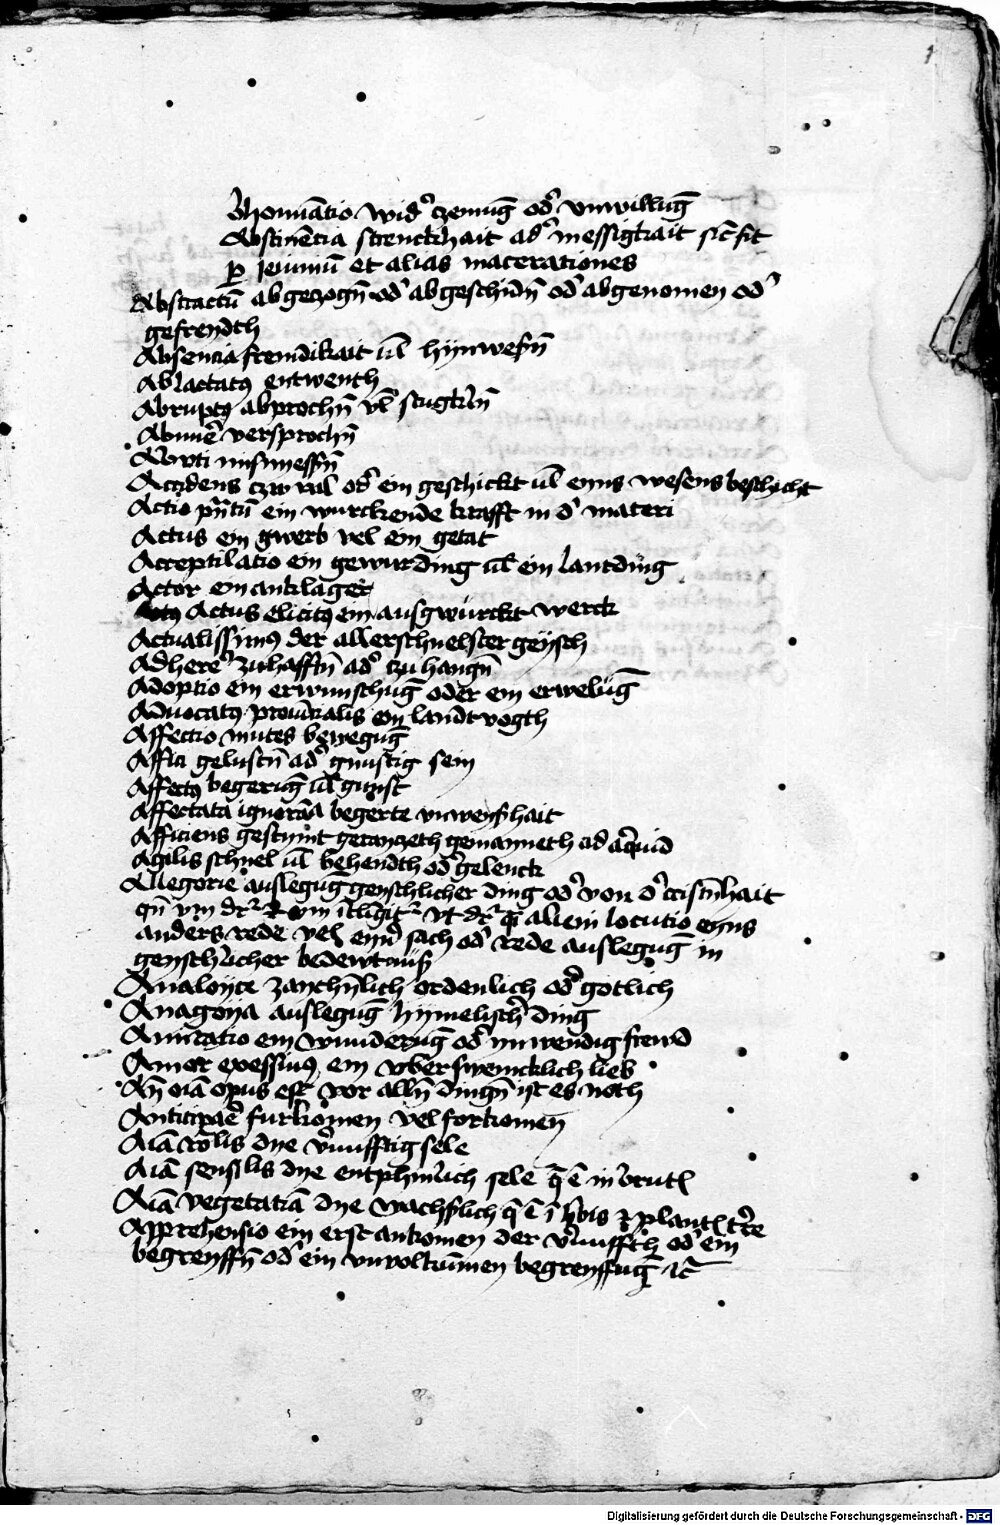 1
bhominatio wid' czemug̅ od' vnwillug̅
Abstine̅cia strenckhait ad' messigkait sic̅ fit
p̲ ieiuniu̅ et alias macerationes
Abstractu̅ abgeczogn̅ od' abgeschidn̅ od' abgenomen od'
gefrendth
Absencia fremdikait ul̅ hynwesn̅
Ablactatus entwenth
Abruptus abprochn̅ vl̅ stugkln̅
Abnue' versprochn̅
Aboti mismessn̅
Accidens czwval od' ein geschickt ul̅ enns wesens beschicht
Actio ein wurckende krafft in d' materi
Actus ein gwerb vel ein getat
Acceptilatio ein gewurding ul̅ ein lantding
Actor ein anklager
Actus elicitus ein ausgwurckt werck
Actualissimus der allerschnelster geysch
Adhere' zuhafftn̅ ad' czu hangn̅
Adoptio ein erwunschug̅ oder ein erwelug̅
Aduocatus prouincialis ein landtvogth
Affectio mutes bewegug̅
Affici gelustn̅ ad' gunstig sein
Affectus begerug̅ ul̅ gunst
Affectata ignora̅cia begerte vnweyshait
Afficiens gestymt gerayczeth gemanneth ad aliquid
Agilis schnel ul̅ behendth od' gelenck
Allegorie auslegug̅ geystlicher ding od' von d' cristn̅hait
qn̅ vm vt alieni locutio eyns
anders rede vel eyn' sach od' rede auslegug̅ in
geystlicher bedewtnuss
Analoyce zaychn̅lich ordenlich od' gotlich
Anagoya auslegug̅ hymelysch' ding
Amiratio ein wunderug̅ od' inwendig frewd
Amor excessiuus ein vberswencklich lieb
An̅ oi̅a opus est vor alln̅ dingn̅ ist es noth
Anticipa'e furkomen vel forkomen
Ai̅a ro̅lis dye v'nufftig sele
Ai̅a sensi̅lis dye entphintlich sele q̅ e̅ in brutis
Ai̅a vegetatia̅ dye wachslich q̅ e̅ i̅ h'bis z plantis
Apprehensio ein erst ankomen der v'nufft od' ein
begreyffn̅ od' ein vnvolkumen begreyffug̅ rc̅
Digitalisierung gefördert durch die Deutsche Forschungsgemeinschaft - DFG